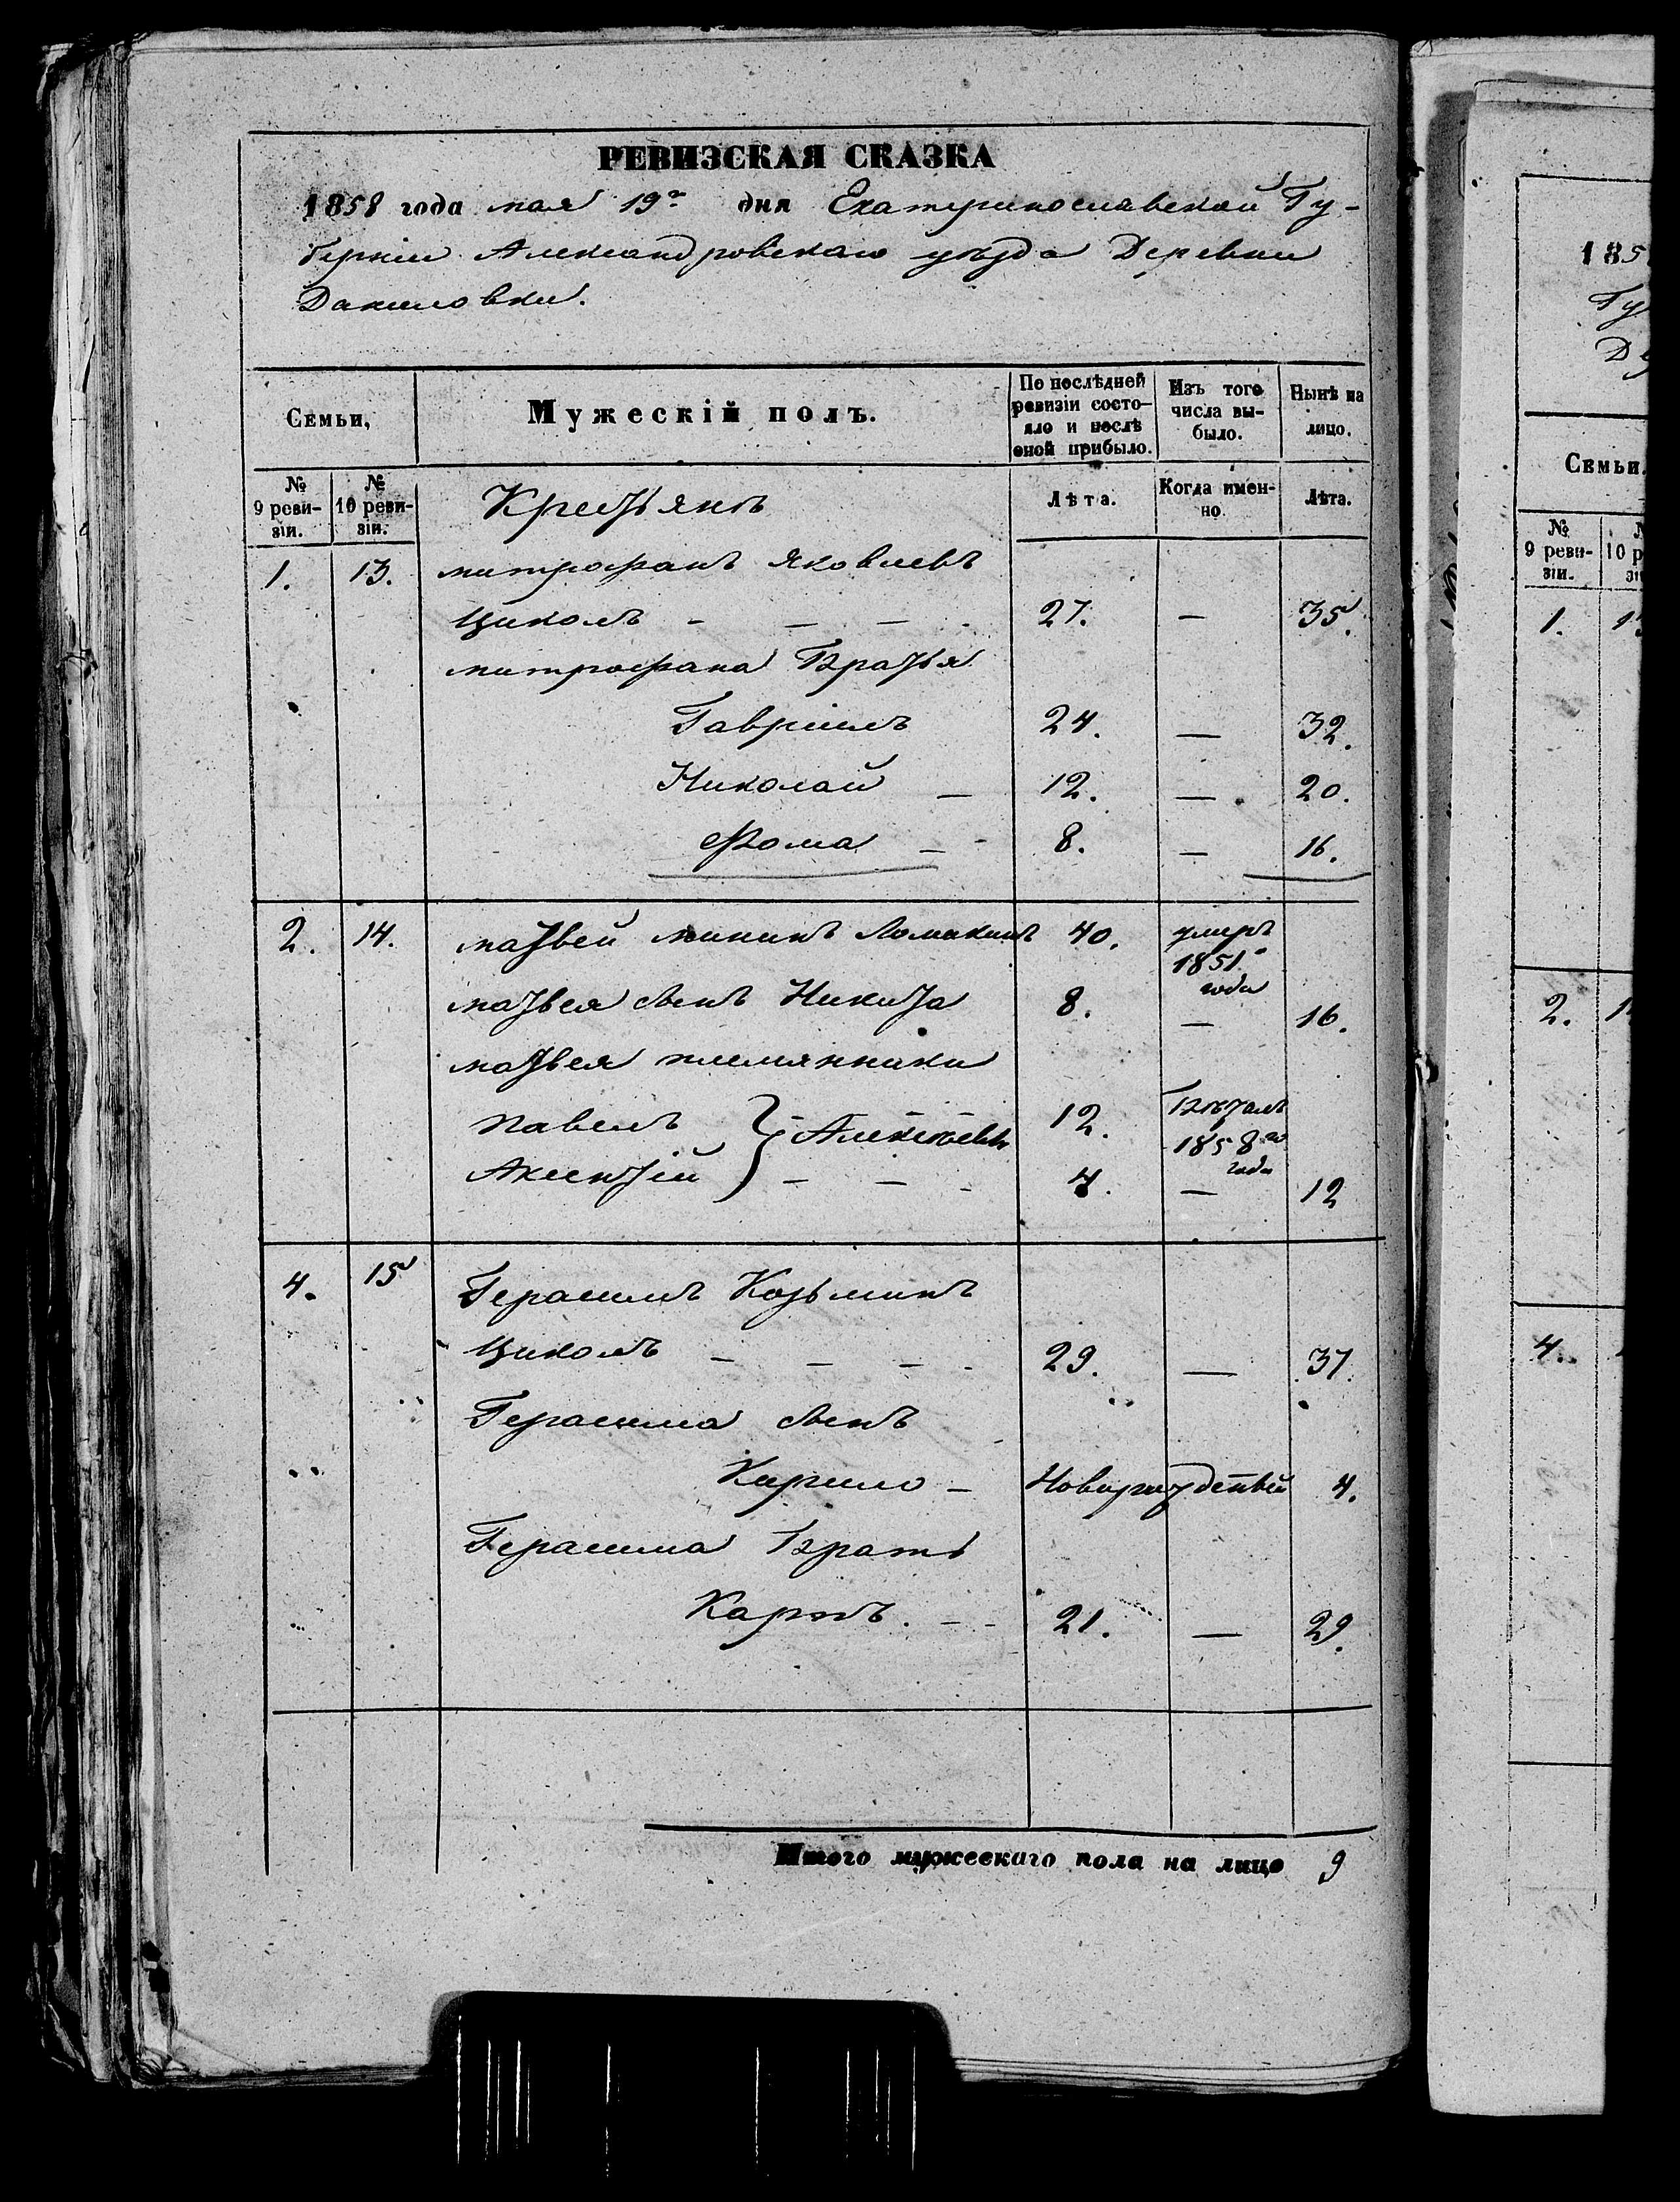 РЕВИЗСКАЯ СКАЗКА
1858 года мая 19го дня Екатеринославской Гу-
берніи Александровскаго уѣзда Деревни
Даниловки.
Семьи,
Мужескій полъ.
По послѣдней ревизіи состо-яло и послѣ оной прибыло.
Изъ того числа вы-было.
Нынѣ на лицо.
№ 9 реви-зіи.
№ 10 реви-зіи.
Крестьянъ
Лѣта.
Когда имен-но
Лѣта.
1. 13. митрофанъ Яковлевъ
Циколъ - - - 27. — 35.
митрофана Братья
Гавріилъ 24. — 32.
Николай — 12. — 20.
Фома — 8. — 16.
2. 14. матвей мининъ Ломакинъ 40. умеръ 1851го года
матвея сынъ Никита 8. — 16.
матвея племянники
Павелъ } Алексѣевы 12. Бѣжалъ 1858го года
Аксентій — — - 4. — 12
4. 15 Герасимъ Козьминъ
Циколъ — — — - 29. — 37.
Герасима сынъ
Кирило — Новорожденный 4.
Герасима Братъ
Карпъ. - - 21. — 29.
Итого мужескаго пола на лицо 9
185
Гу
Де
Семьи.
№ 9 реви-зіи.
10 р
1.
2.
4.